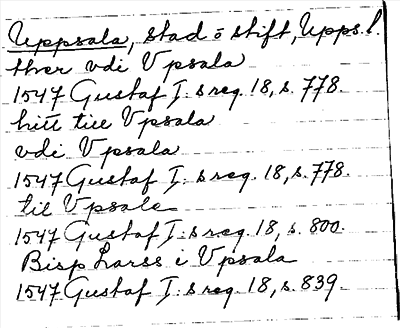 Uppsala, stad o stift, Upps. l.
ther vdi Vpsala
1547 Gustaf I: s reg. 18, s. 778.
hiit till Vpsala
vdi Vpsala
1547 Gustaf I: s reg. 18, s. 778.
til Vpsale
1547 Gustaf I: s reg. 18, s. 800.
Bisp Larss i Vpsala
1547 Gustaf I: s reg. 18, s. 839.